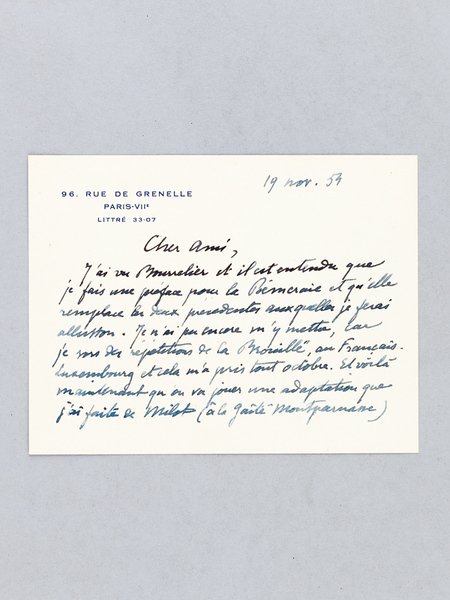 96, RUE DE GRENELLE
PARIS-VIIᵉ
LITTRÉ 33-07
19 nov. 54
Cher ami,
J'ai vu Bourrelier et il est entendu que
je fais une préface pour la et qu'elle
remplace les deux précédentes auxquelles je ferai
allusion. Je n'ai pu encore m'y mettre, car
je sors des répétitions de la "Brouille", au Français-
Luxembourg et cela m'a pris tout octobre. Et voilà
maintenant qu'on va jouer une adaptation que
j'ai faite de (à la Gaîté Montparnasse)